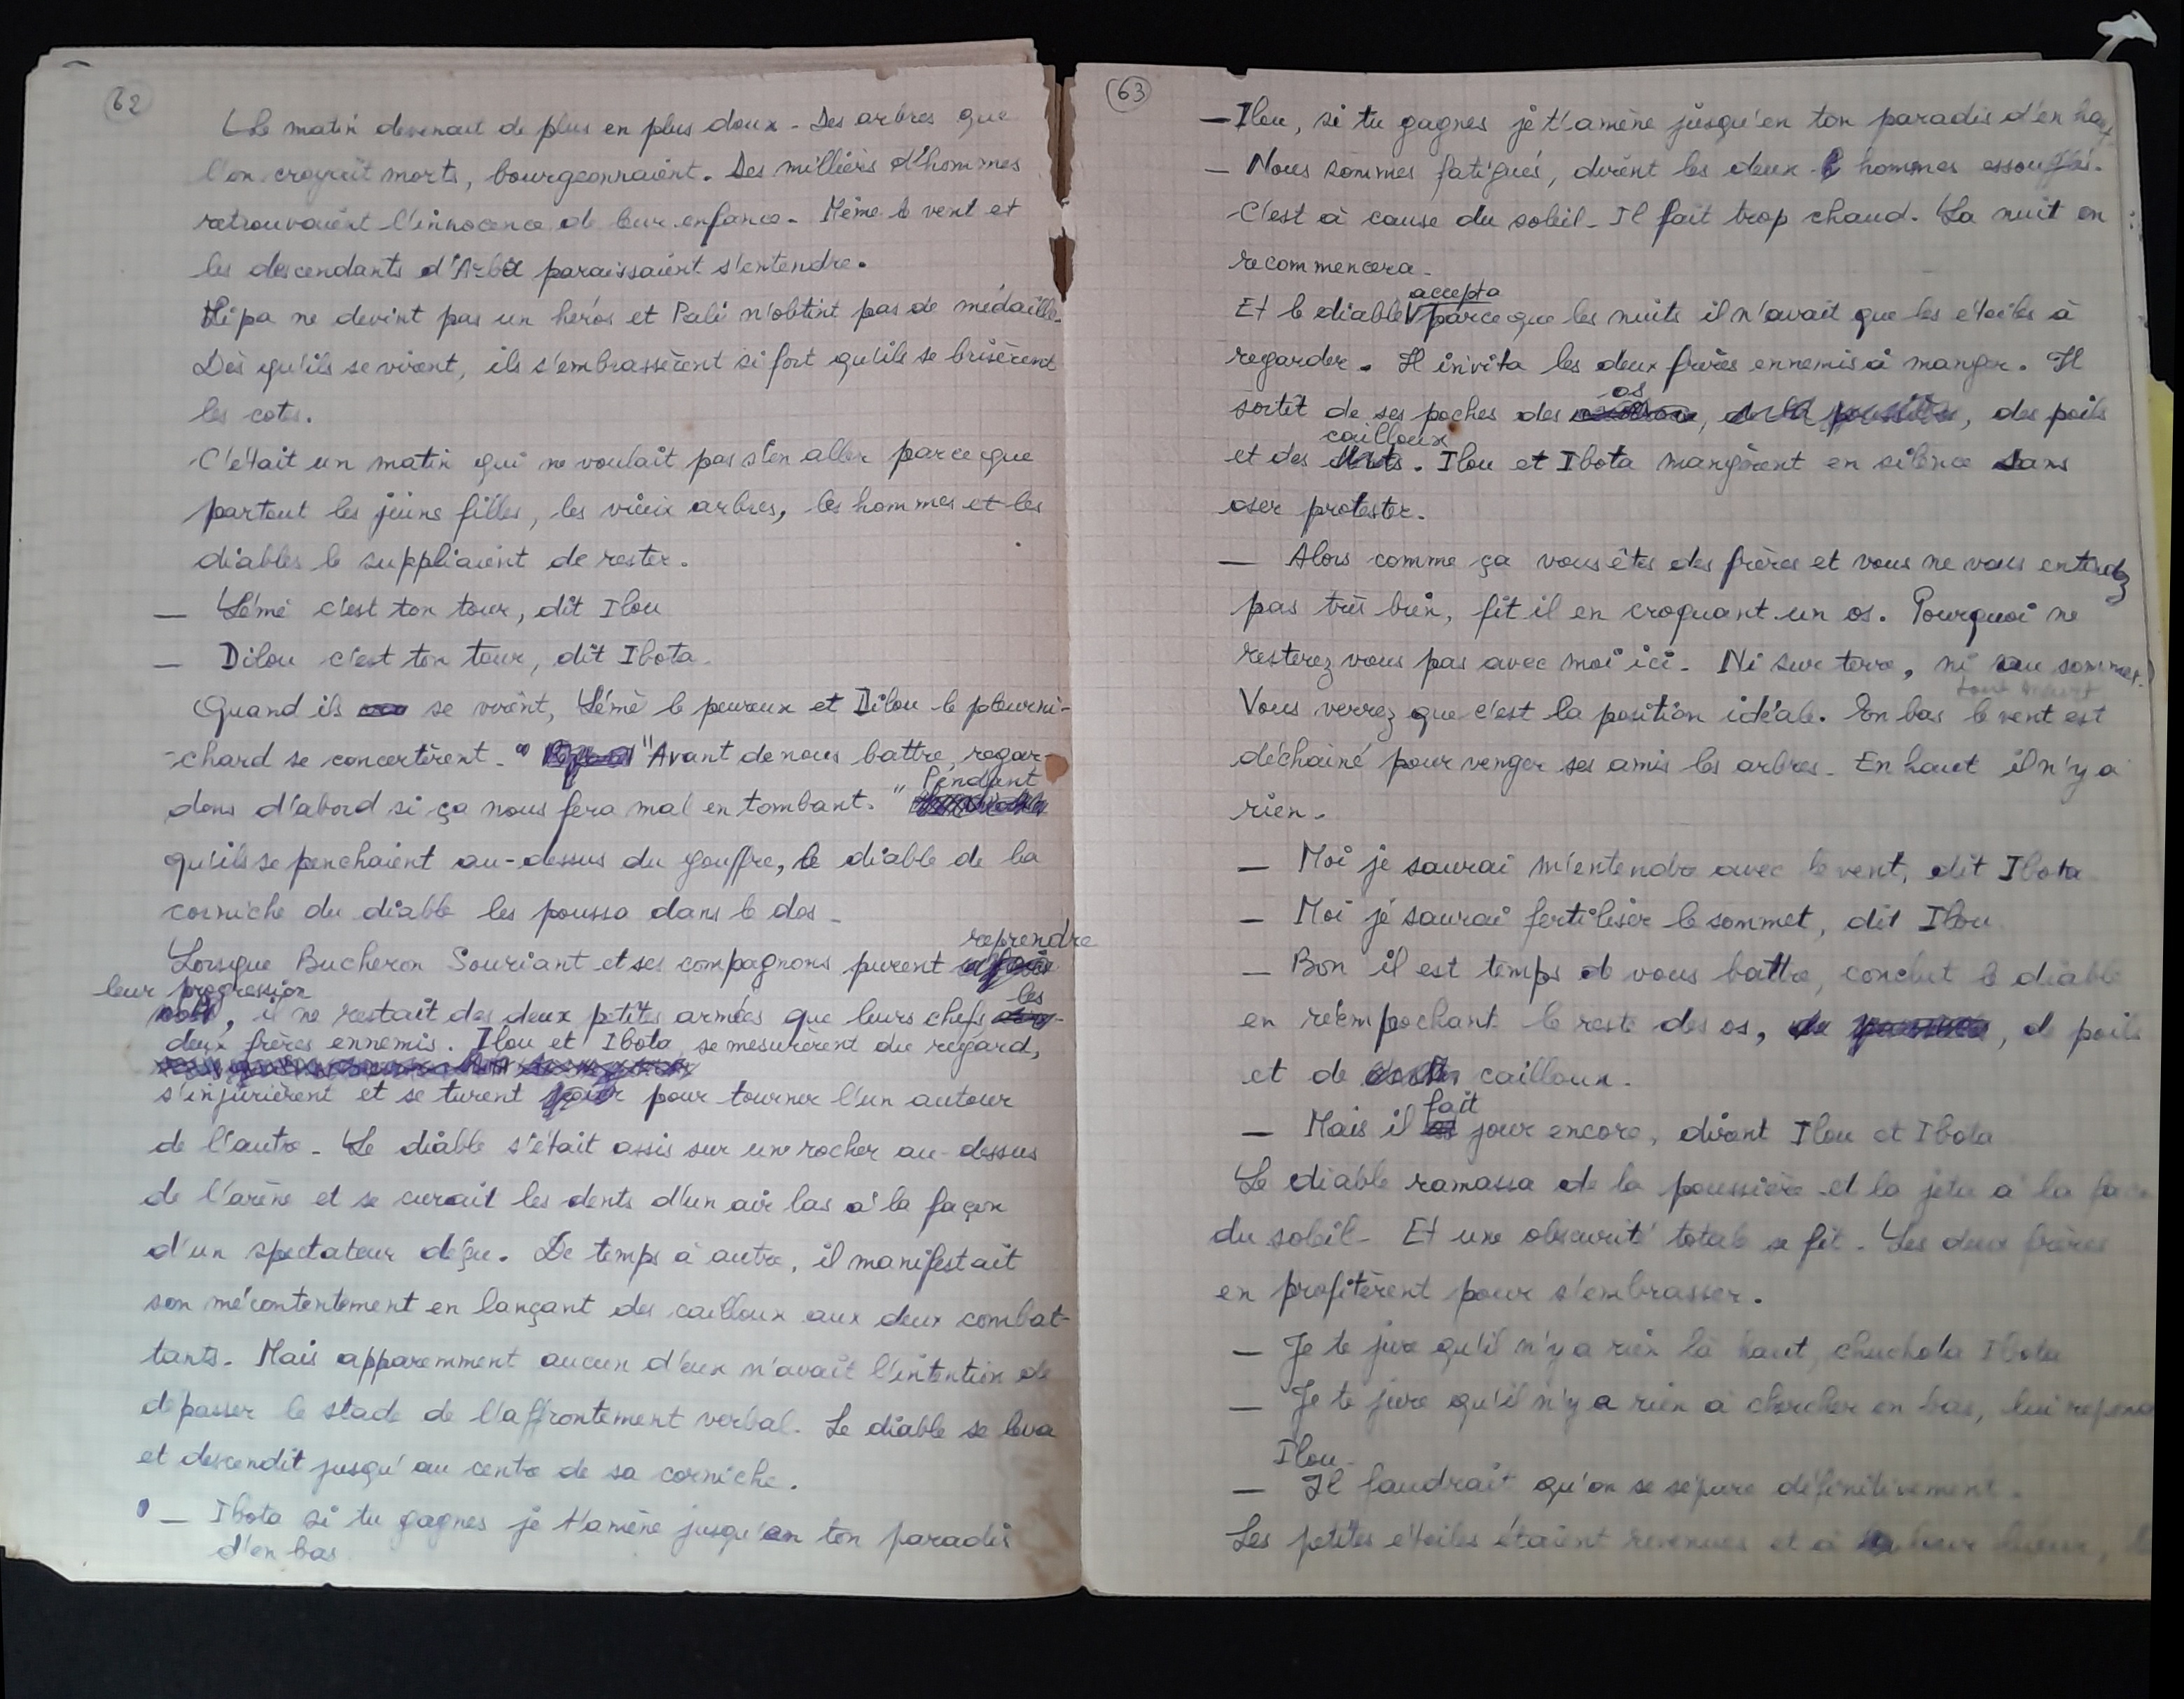 62
Le matin devenait de plus en plus doux. Des arbres que
l'on croyait morts, bourgeonnaient. Des milliers d'hommes
retrouvaient l'innocence de leur enfance. Même le vent et
les descendants d'Arbit paraissaient s'entendre.
Lipa ne devint pas un héros et Pali n'obtint pas de médaille.
Dès qu'ils se virent, ils s'embrassèrent si fort qu'ils se brisèrent
les cotes.
C'était un matin qui ne voulait pas s'en aller parceque
partout les jeune filles, les vieux arbres, les hommes et les
diables le suppliaient de rester.
— Lémé c'est ton tour, dit Ilou
— Dilou c'est ton tour, dit Ibota.
Quand ils se virent, Lémé le peureux et Dilou le pleurni-
-chard se concertèrent. "Avant de nous battre, regar-
dons d'abord si ça nous fera mal en tombant." Pendant
qu'ils se penchaient au-dessus du gouffre, le diable de la
corniche du diable les poussa dans le dos.
Lorsque Bucheron Souriant et ses compagnons purent reprendre
leur progression, il ne restait des deux petites armées que leurs chefs les
deux frères ennemis. Ilou et Ibota se mesurèrent du regard,
s'injurièrent et se turent pour tourner l'un autour
de l'autre. Le diable s'était assis sur une rocher au-dessus
de l'arène et se curait les dents d'un air las à la façon
d'un spectateur deçu. De temps à autre, il manifestait
son mécontentement en lançant des cailloux aux deux combat-
tants. Mais apparemment aucun d'eux n'avait l'intention de
dépasser le stade de l'affrontement verbal. Le diable se leva
et descendit jusqu'au centre de sa corniche.
— Ibota si tu gagnes je t'amène jusqu'en ton paradis
d'en bas
63
— Ilou, si tu gagnes je t'amène jusqu'en ton paradis d'en haut
— Nous sommes fatigués, dirent les deux hommes essouflés.
C'est à cause du soleil. Il fait trop chaud. La nuit on
recommencera.
Et le diable accepta parceque les nuits il n'avait que les étoiles à
regarder. Il invita les deux frères ennemis à manger. Il
sortit de ses poches des os, des poils
et des cailloux. Ilou et Ibota mangèrent en silence sans
oser protester.
— Alors comme ça vous êtes des frères et vous ne vous entendez
pas très bien, fit il en croquant un os. Pourquoi ne
resterez vous pas avec moi ici. Ni sur terre, ni au sommet.
Vous verrez que c'est la position idéale. En bas le vent est
déchainé pour venger ses amis les arbres. En haut il n'y a
rien.
— Moi je saurai m'entendre avec le vent, dit Ibota
— Moi je saurai fertiliser le sommet, dit Ilou
— Bon il est temps de vous battre, conclut le diable
en réempochant le reste des os, de poils
et de cailloux.
— Mais il fait jour encore, dirent Ilou et Ibota
Le diable ramassa de la poussière et la jeta à la face
du soleil. Et une obscurité totale se fit. Les deux frères
en profitèrent pour s'embrasser.
— Je te jure qu'il n'y a rien là haut, chuchota Ibota
— Je te jure qu'il n'y a rien à chercher en bas, lui repond
Ilou.
— Il faudrait qu'on se sépare définitivement.
Les petites étoiles étaient revenues et à leur lueur,